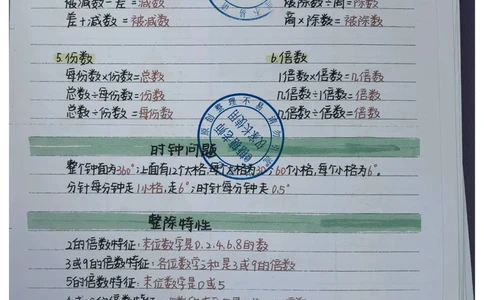 被减数-差=减数
被除数÷商=除数
差+减数=被减数
商×除数=被除数
5.份数
6.倍数
每份数×份数=总数
1倍数×倍数=几倍数
总数÷每份数=份数
几倍数÷1倍数=倍数
总数÷份数=每份数
几倍数÷倍数=倍数
时钟问题
整个钟面为360°,上面有12个大格,每个大格为30°;60个小格,每个小格为6°。
分针每分钟走1小格,走6°;时针每分钟走0.5°
整除特性
2的倍数特征:末位数字是0.2.4.6.8的数
3或9的倍数特征:各位数字之和是3或9的倍数
5的倍数特征:末位数字是0或5
原创整理不易 请勿